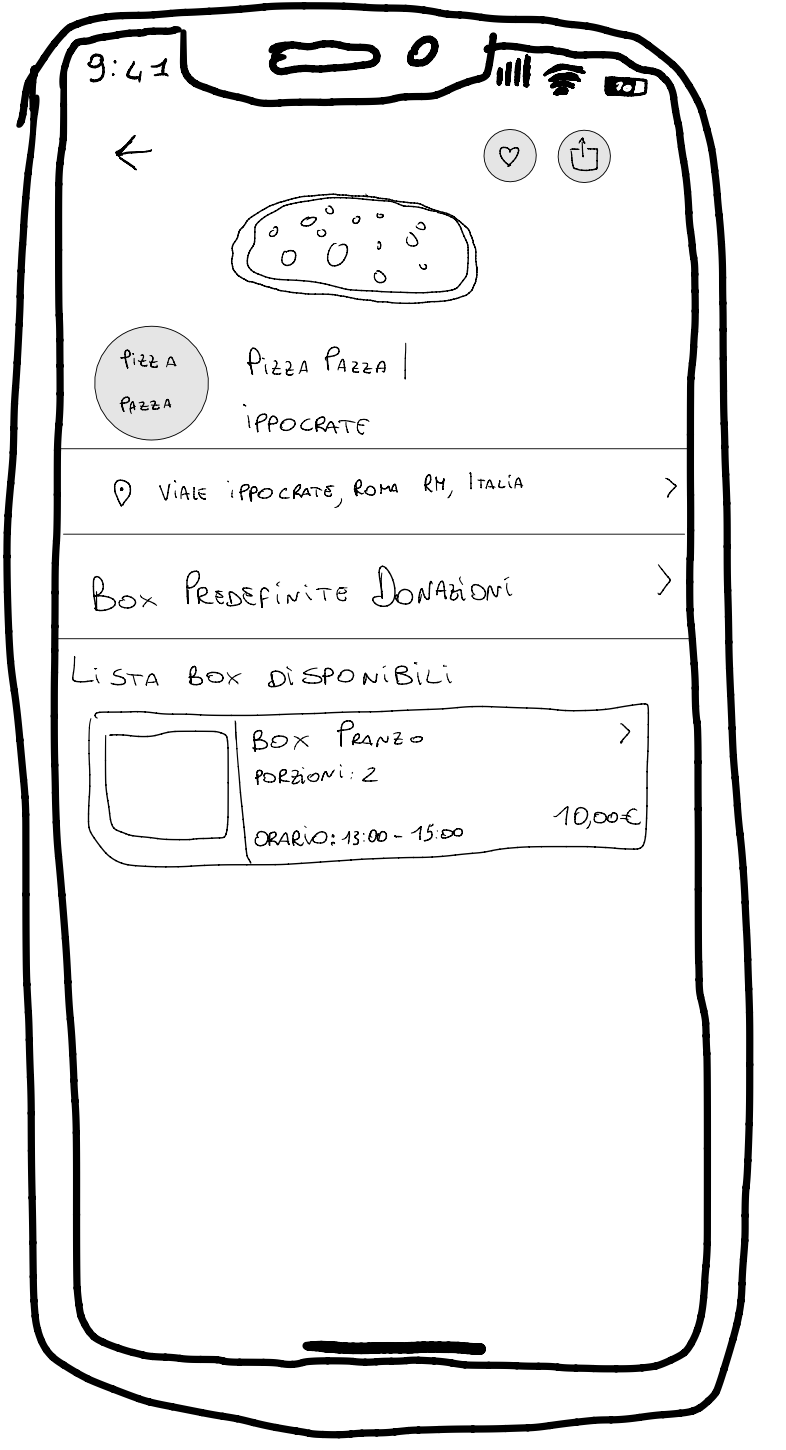 9:41
PIZZA
PAZZA
PIZZA PAZZA |
IPPOCRATE
VIALE IPPOCRATE, ROMA RM, ITALIA
BOX PREDEFINITE DONAZIONI
LISTA BOX DISPONIBILI
BOX PRANZO
PORZIONI: 2
10,00€
ORARIO: 13:00 - 15:00